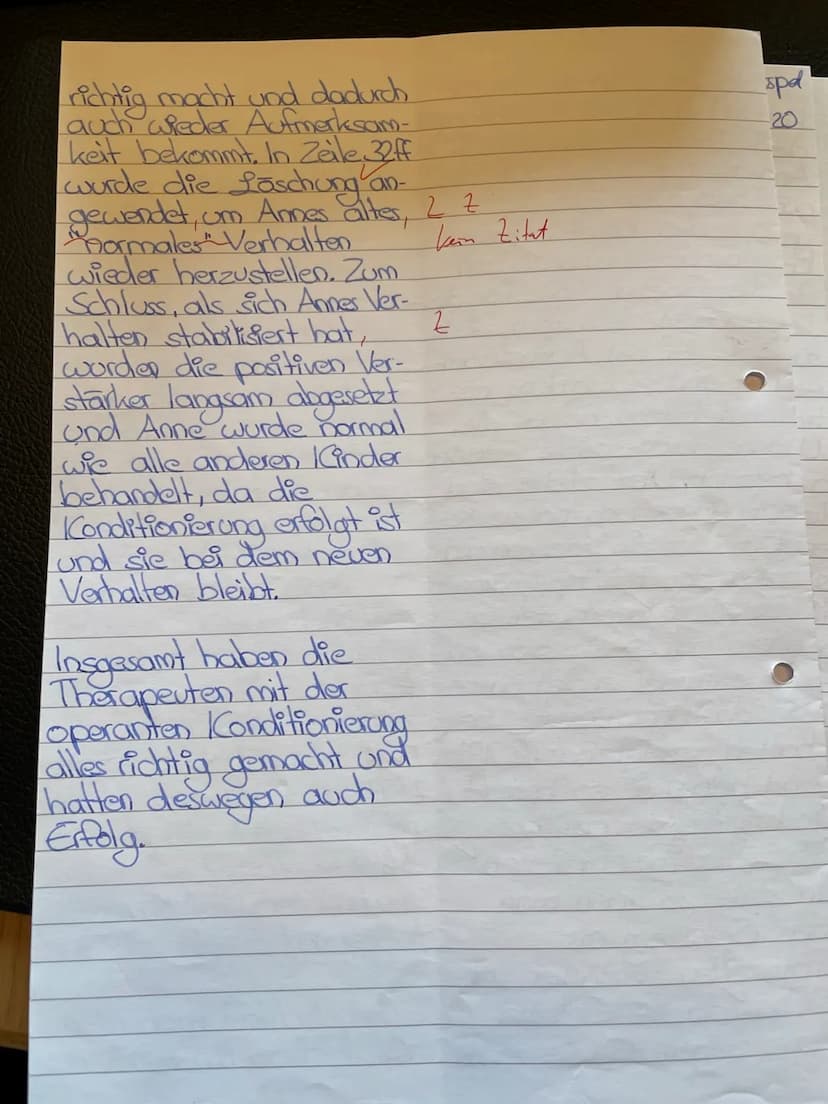 spd
20
richtig macht und dadurch
auch wieder Aufmerksam-
keit bekommt. In Zeile 32ff
wurde die Löschung an-
gewendet, um Annes altes, 2 Z
"normales" Verhalten kein Zitat
wieder herzustellen. Zum
Schluss, als sich Annes Ver-
halten stabilisiert hat, Z
wurden die positiven Ver-
stärker langsam abgesetzt
und Anne wurde normal
wie alle anderen Kinder
behandelt, da die
Konditionierung erfolgt ist
und sie bei dem neuen
Verhalten bleibt.
Insgesamt haben die
Therapeuten mit der
operanten Konditionierung
alles richtig gemacht und
hatten deswegen auch
Erfolg.